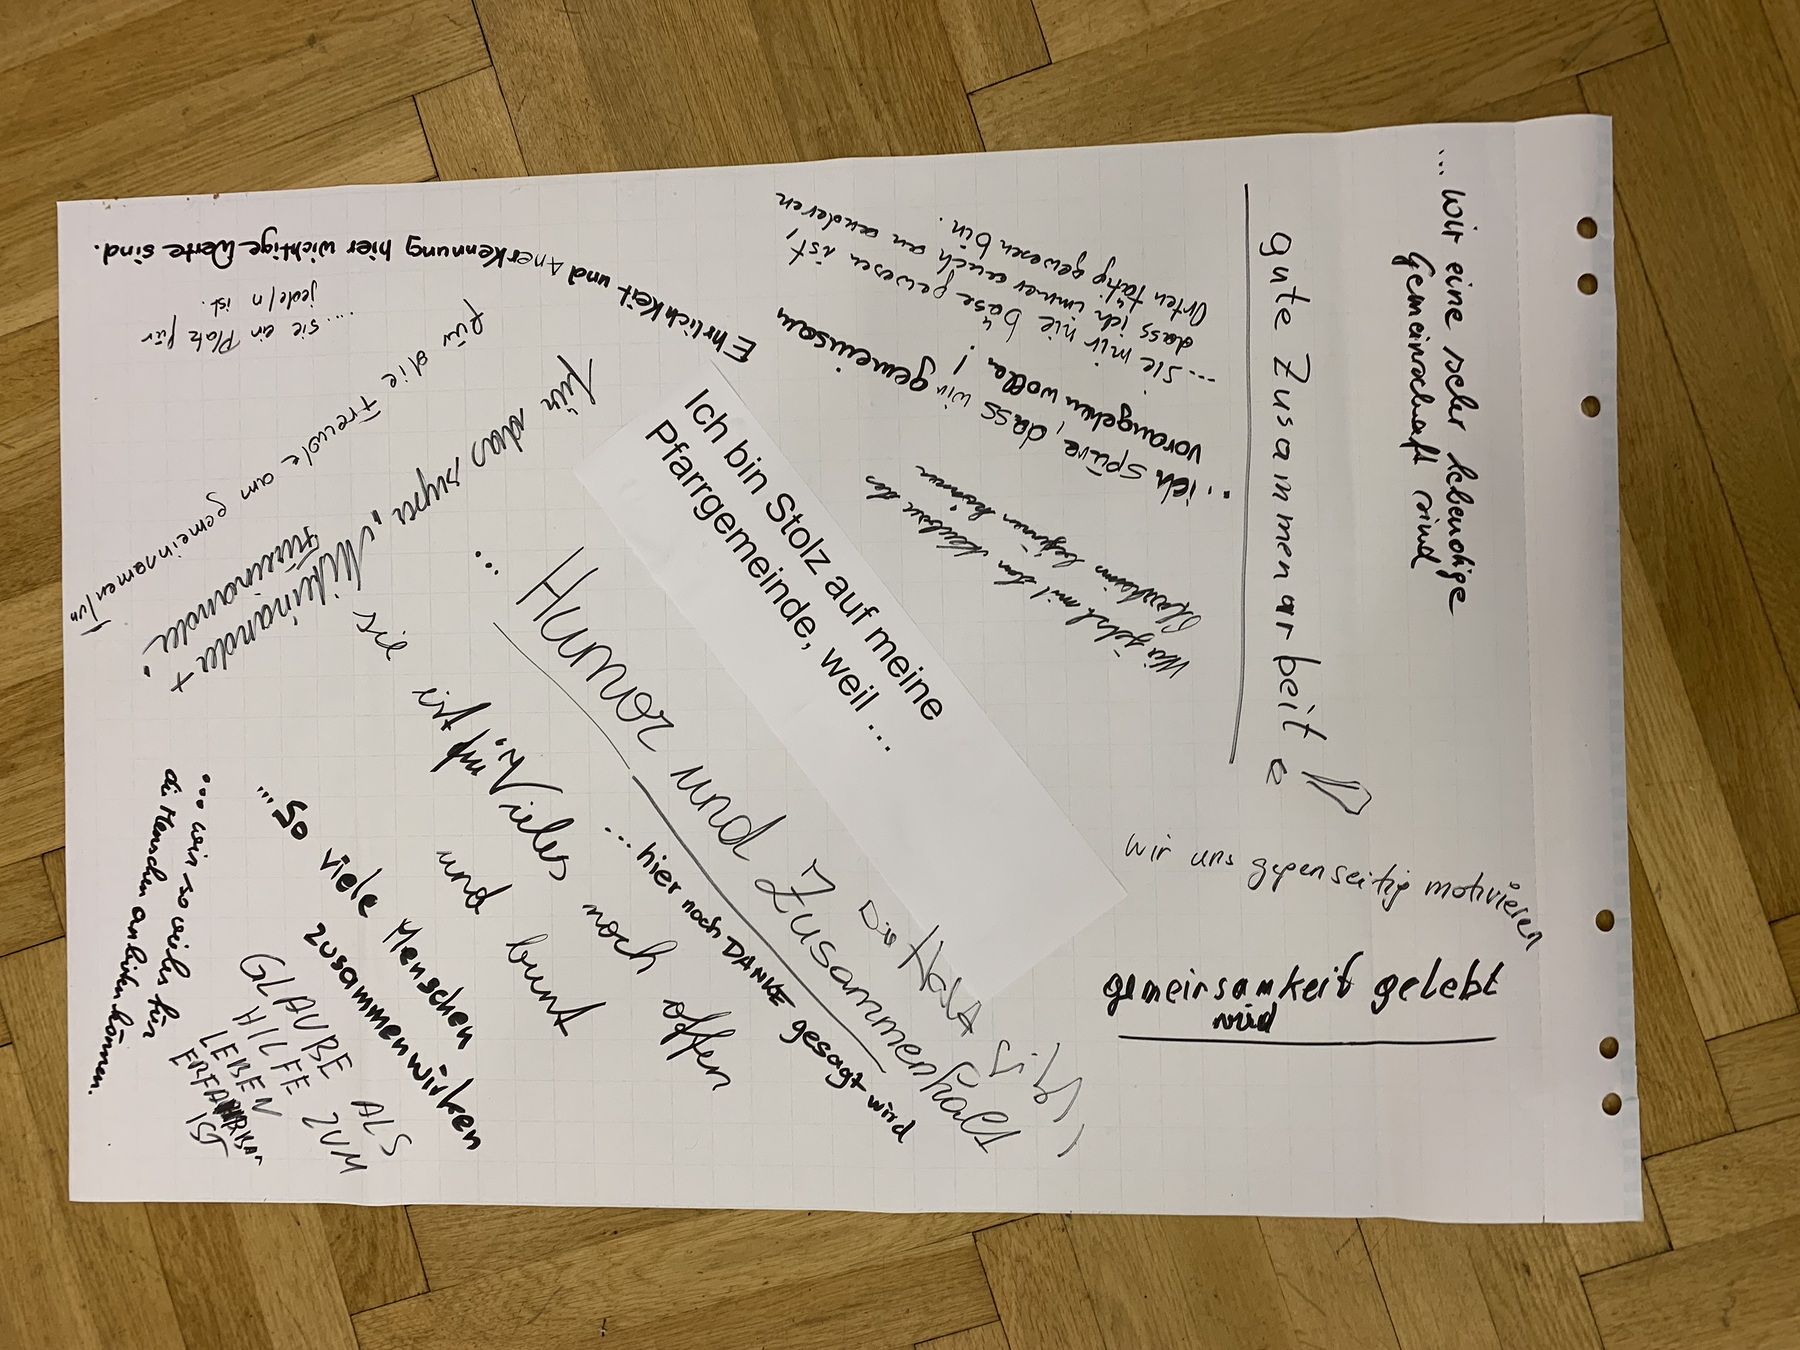 Ich bin Stolz auf meine
Pfarrgemeinde, weil ...
... wir eine sehr lebendige
Gemeinschaft sind
gute Zusammenarbeit
wir uns gegenseitig motivieren
gemeinsamkeit gelebt
wird
... sie mir nie böse gewesen ist,
dass ich immer auch an anderen
Orten tätig gewesen bin.
... ich spüre, dass wir gemeinsam
vorangehen wollen!
mit den
beginnen können
Ehrlichkeit und Anerkennung hier wichtige Werte sind.
.... sie ein Platz für
jede/n ist.
für die Freude am gemeinsamen Tun
für das super „Miteinander +
Füreinander"
... Humor und Zusammenhalt
Du Hast
sie ist für "Vieles noch offen
und bunt
... hier noch DANKE gesagt wird
... so viele Menschen
zusammenwirken
... wir so vieles für
die Menschen anbieten können.
GLAUBE ALS
HILFE ZUM
LEBEN
IST